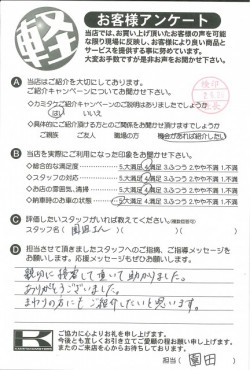 軽
お客様アンケート
当店では、お買い上げ頂いたお客様の声を可能
な限り現場に反映し、お客様により良い商品と
サービスを提供する事に努めております。
大変お手数ですが是非お声をお聞かせ下さい。
A 当店はご紹介を大切にしております。
ご紹介キャンペーンについてお聞かせ下さい。
◇カミタケご紹介キャンペーンのご説明はありましたでしょうか
はい いいえ
◇具体的にご紹介頂ける方とのご関係をお聞かせ頂けますでしょうか
ご親族 ご友人 職場の方 機会があれば紹介したい
B 当店を実際にご利用になった印象をお聞かせ下さい。
◇総合的な満足度 5.大満足 4.満足 3.ふつう 2.やや不満 1.不満
◇スタッフの対応 5.大満足 4.満足 3.ふつう 2.やや不満 1.不満
◇お店の雰囲気、清掃 5.大満足 4.満足 3.ふつう 2.やや不満 1.不満
◇納車時のお車の状態 5.大満足 4.満足 3.ふつう 2.やや不満 1.不満
C 評価したいスタッフがいれば教えてください。(複数回答可)
スタッフ名( 園田さん )( )( )
D 担当させて頂きましたスタッフへのご指摘、ご指導メッセージを
お願いします。応援メッセージもぜひお願いします。
親切に接客して頂いて助かりました。
ありがとうございました。
まわりの方にもご紹介したいと思います。
K
ご協力に心よりお礼を申し上げます。
今後とも宜しくお引き立てご愛顧の程お願い申し上げます。
またのご来店を心からお待ちしております。
担当( 園田 )